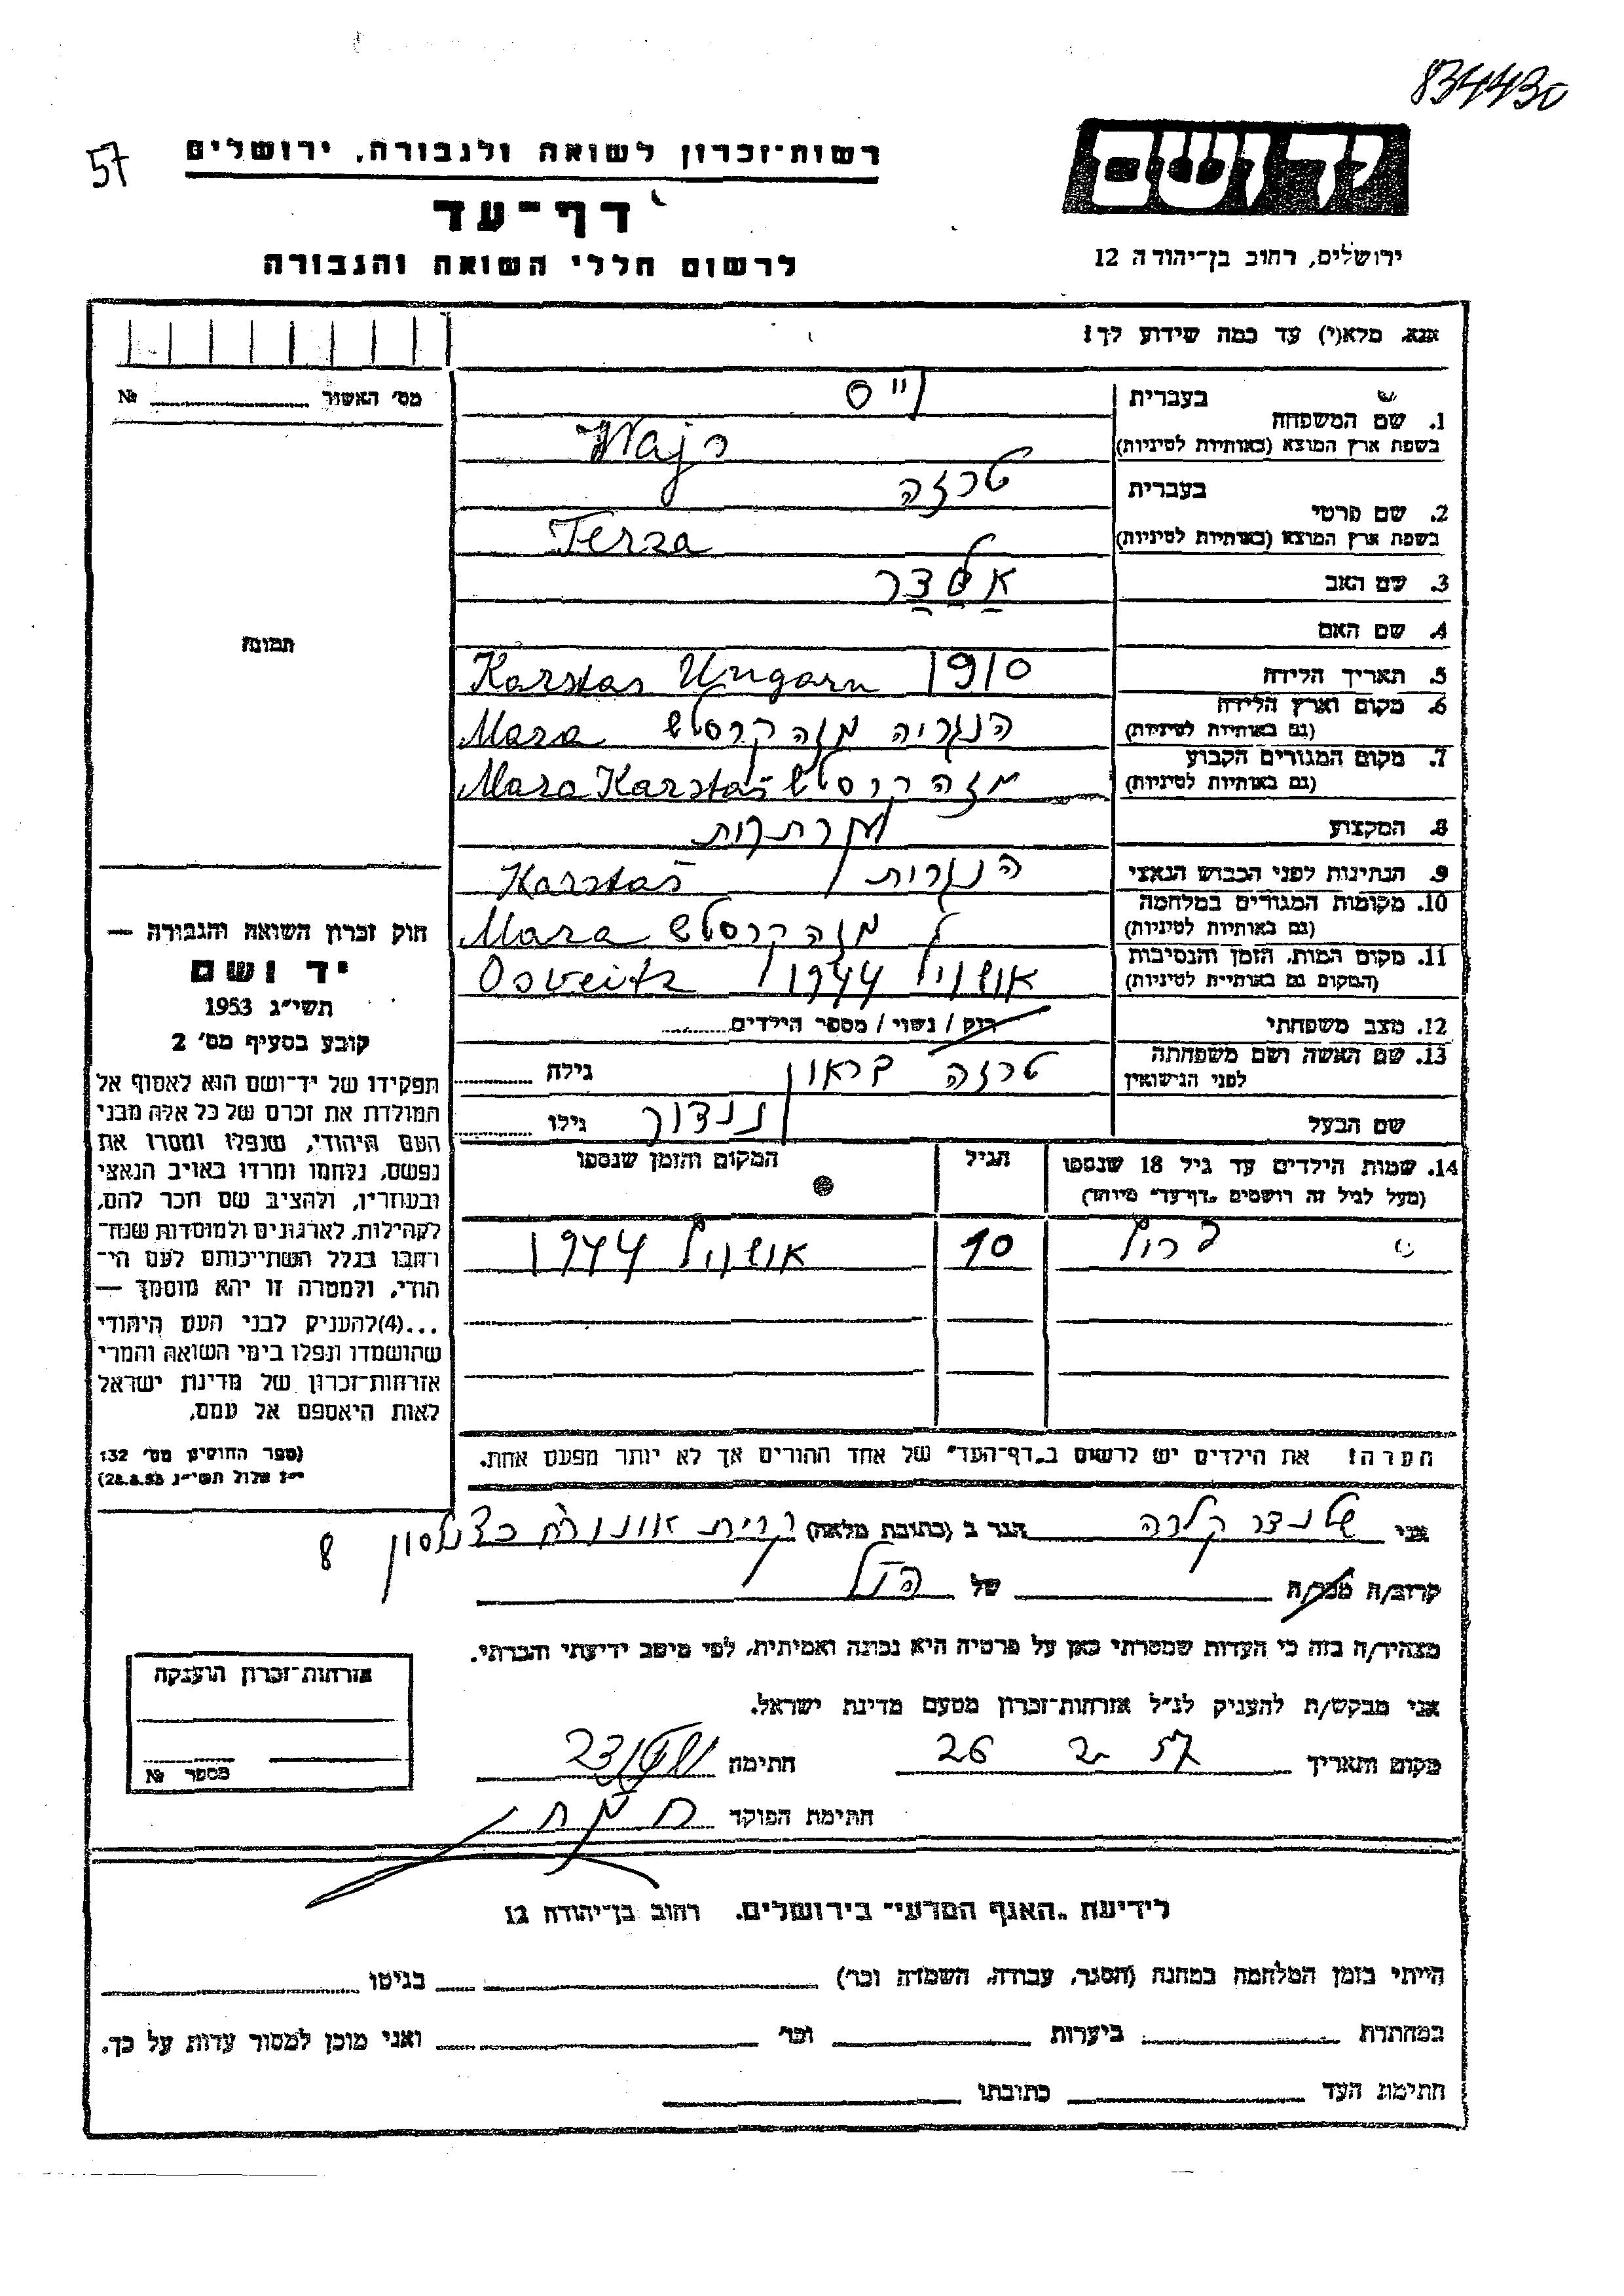 834430
57
רשות־זכרון לשואה ולגבורה, ירושלים
יד ושם
דף־עד
לרשום חללי השואה והגבורה
ירושלים, רחוב בן־יהודה 12
אנא, מלא(י) עד כמה שידוע לך!
מס׳ האשור № 
1. שם המשפחה
בעברית
וייס
בשפת ארץ המוצא (באותיות לטיניות)
Wajs
2. שם פרטי
בעברית
טרזה
בשפת ארץ המוצא (באותיות לטיניות)
Terza
3. שם האב
4. שם האם
5. תאריך הלידה
1910 Karstas Ungarn
6. מקום וארץ הלידה
(גם באותיות לטיניות)
הנגריה מזה קרסטש Maza
7. מקום המגורים הקבוע
(גם באותיות לטיניות)
מזה קרסטש Maza Karstaš
8. המקצוע
9. הנתינות לפני הכבוש הנאצי
הנגרית Karstaš
10. מקומות המגורים במלחמה
(גם באותיות לטיניות)
מזה קרסטש Maza
11. מקום המות, הזמן והנסיבות
(המקום גם באותיית לטיניות)
אושויץ 1944 Osveitz
12. מצב משפחתי
רוק / נשוי / מספר הילדים
13. שם האשה ושם משפחתה
לפני הנישואין
טרזה בראון
גילה
שם הבעל
ננדור
גילו
14. שמות הילדים עד גיל 18 שנספו
(מעל לגיל זה רושמים „דף־עד״ מיוחד)
הגיל
המקום והזמן שנספו
10
אושויץ 1944
הערה! את הילדים יש לרשום ב„דף־העד״ של אחד ההורים אך לא יותר מפעם אחת.
תמונה
חוק זכרון השואה והגבורה —
יד ושם
תשי״ג 1953
קובע בסעיף מס׳ 2
תפקידו של יד־ושם הוא לאסוף אל
המולדת את זכרם של כל אלה מבני
העם היהודי, שנפלו ומסרו את
נפשם, נלחמו ומרדו באויב הנאצי
ובעוזריו, ולהציב שם וזכר להם,
לקהילות, לארגונים ולמוסדות שנח־
רבו בגלל השתייכותם לעם הי־
הודי, ולמטרה זו יהא מוסמך —
...(4)להעניק לבני העם היהודי
שהושמדו ונפלו בימי השואה והמרי
אזרחות־זכרון של מדינת ישראל
לאות היאספם אל עמם.
(ספר החוקים מס׳ 132
י״ז אלול תשי״ג 28.8.53)
אני
קלרה
הגר ב (כתובת מלאה)
קרית אונו
כצנלסון 8
קרוב/ה מכר/ה
של
הנ״ל
מצהיר/ה בזה כי העדות שמסרתי כאן על פרטיה היא נכונה ואמיתית, לפי מיטב ידיעתי והכרתי.
אני מבקש/ת להעניק לנ״ל אזרחות־זכרון מטעם מדינת ישראל.
מקום ותאריך
26 2 57
חתימה
חתימת הפוקד
אזרחות־זכרון הוענקה
מספר №
לידיעת „האגף המדעי״ בירושלים, רחוב בן־יהודה 12
הייתי בזמן המלחמה במחנה (הסגר, עבודה, השמדה וכו׳) בגיטו
במחתרת ביערות וכו׳ ואני מוכן למסור עדות על כך.
חתימת העד כתובתו